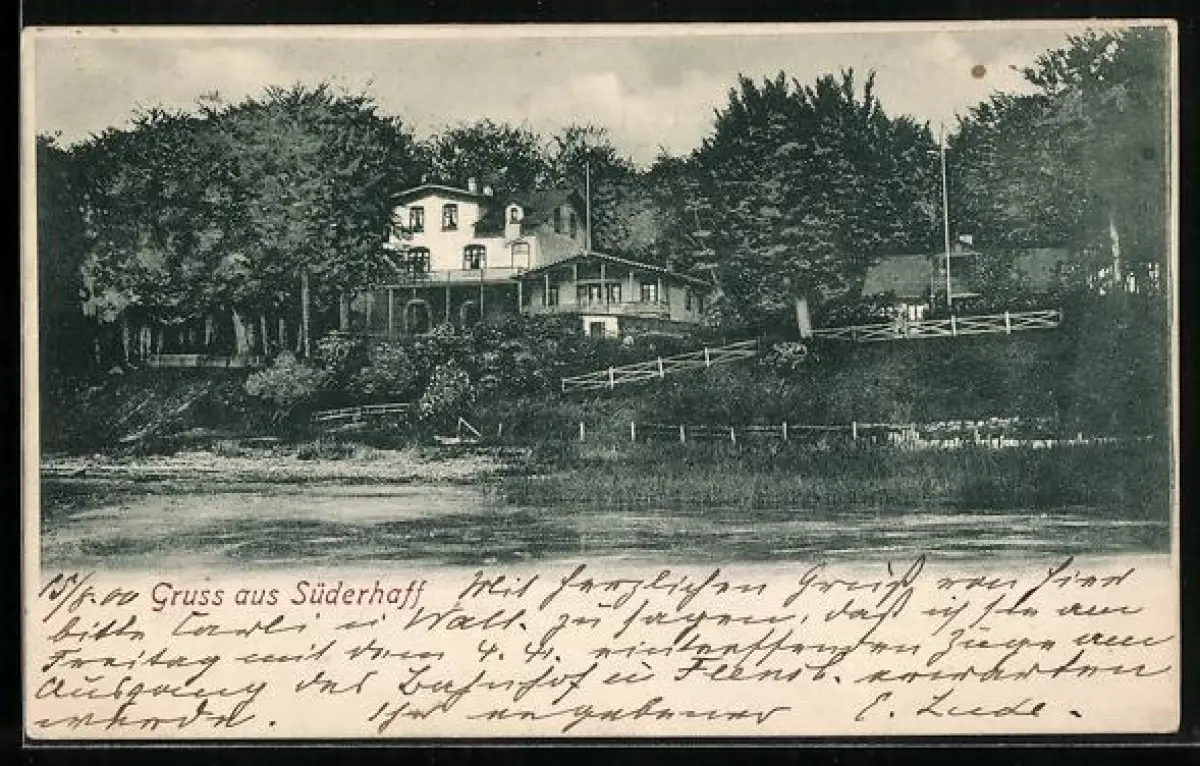 15/8.00 Gruss aus Süderhaff Mit herzlichen Gruß von hier
bitte Carli u Walt. zu sagen, daß ich sie am
Freitag mit dem 4.4. eintreffenden Zuge am
Ausgang des Bahnhof u Flensb. erwarten
werde. Ihr ergebener E. Lude.